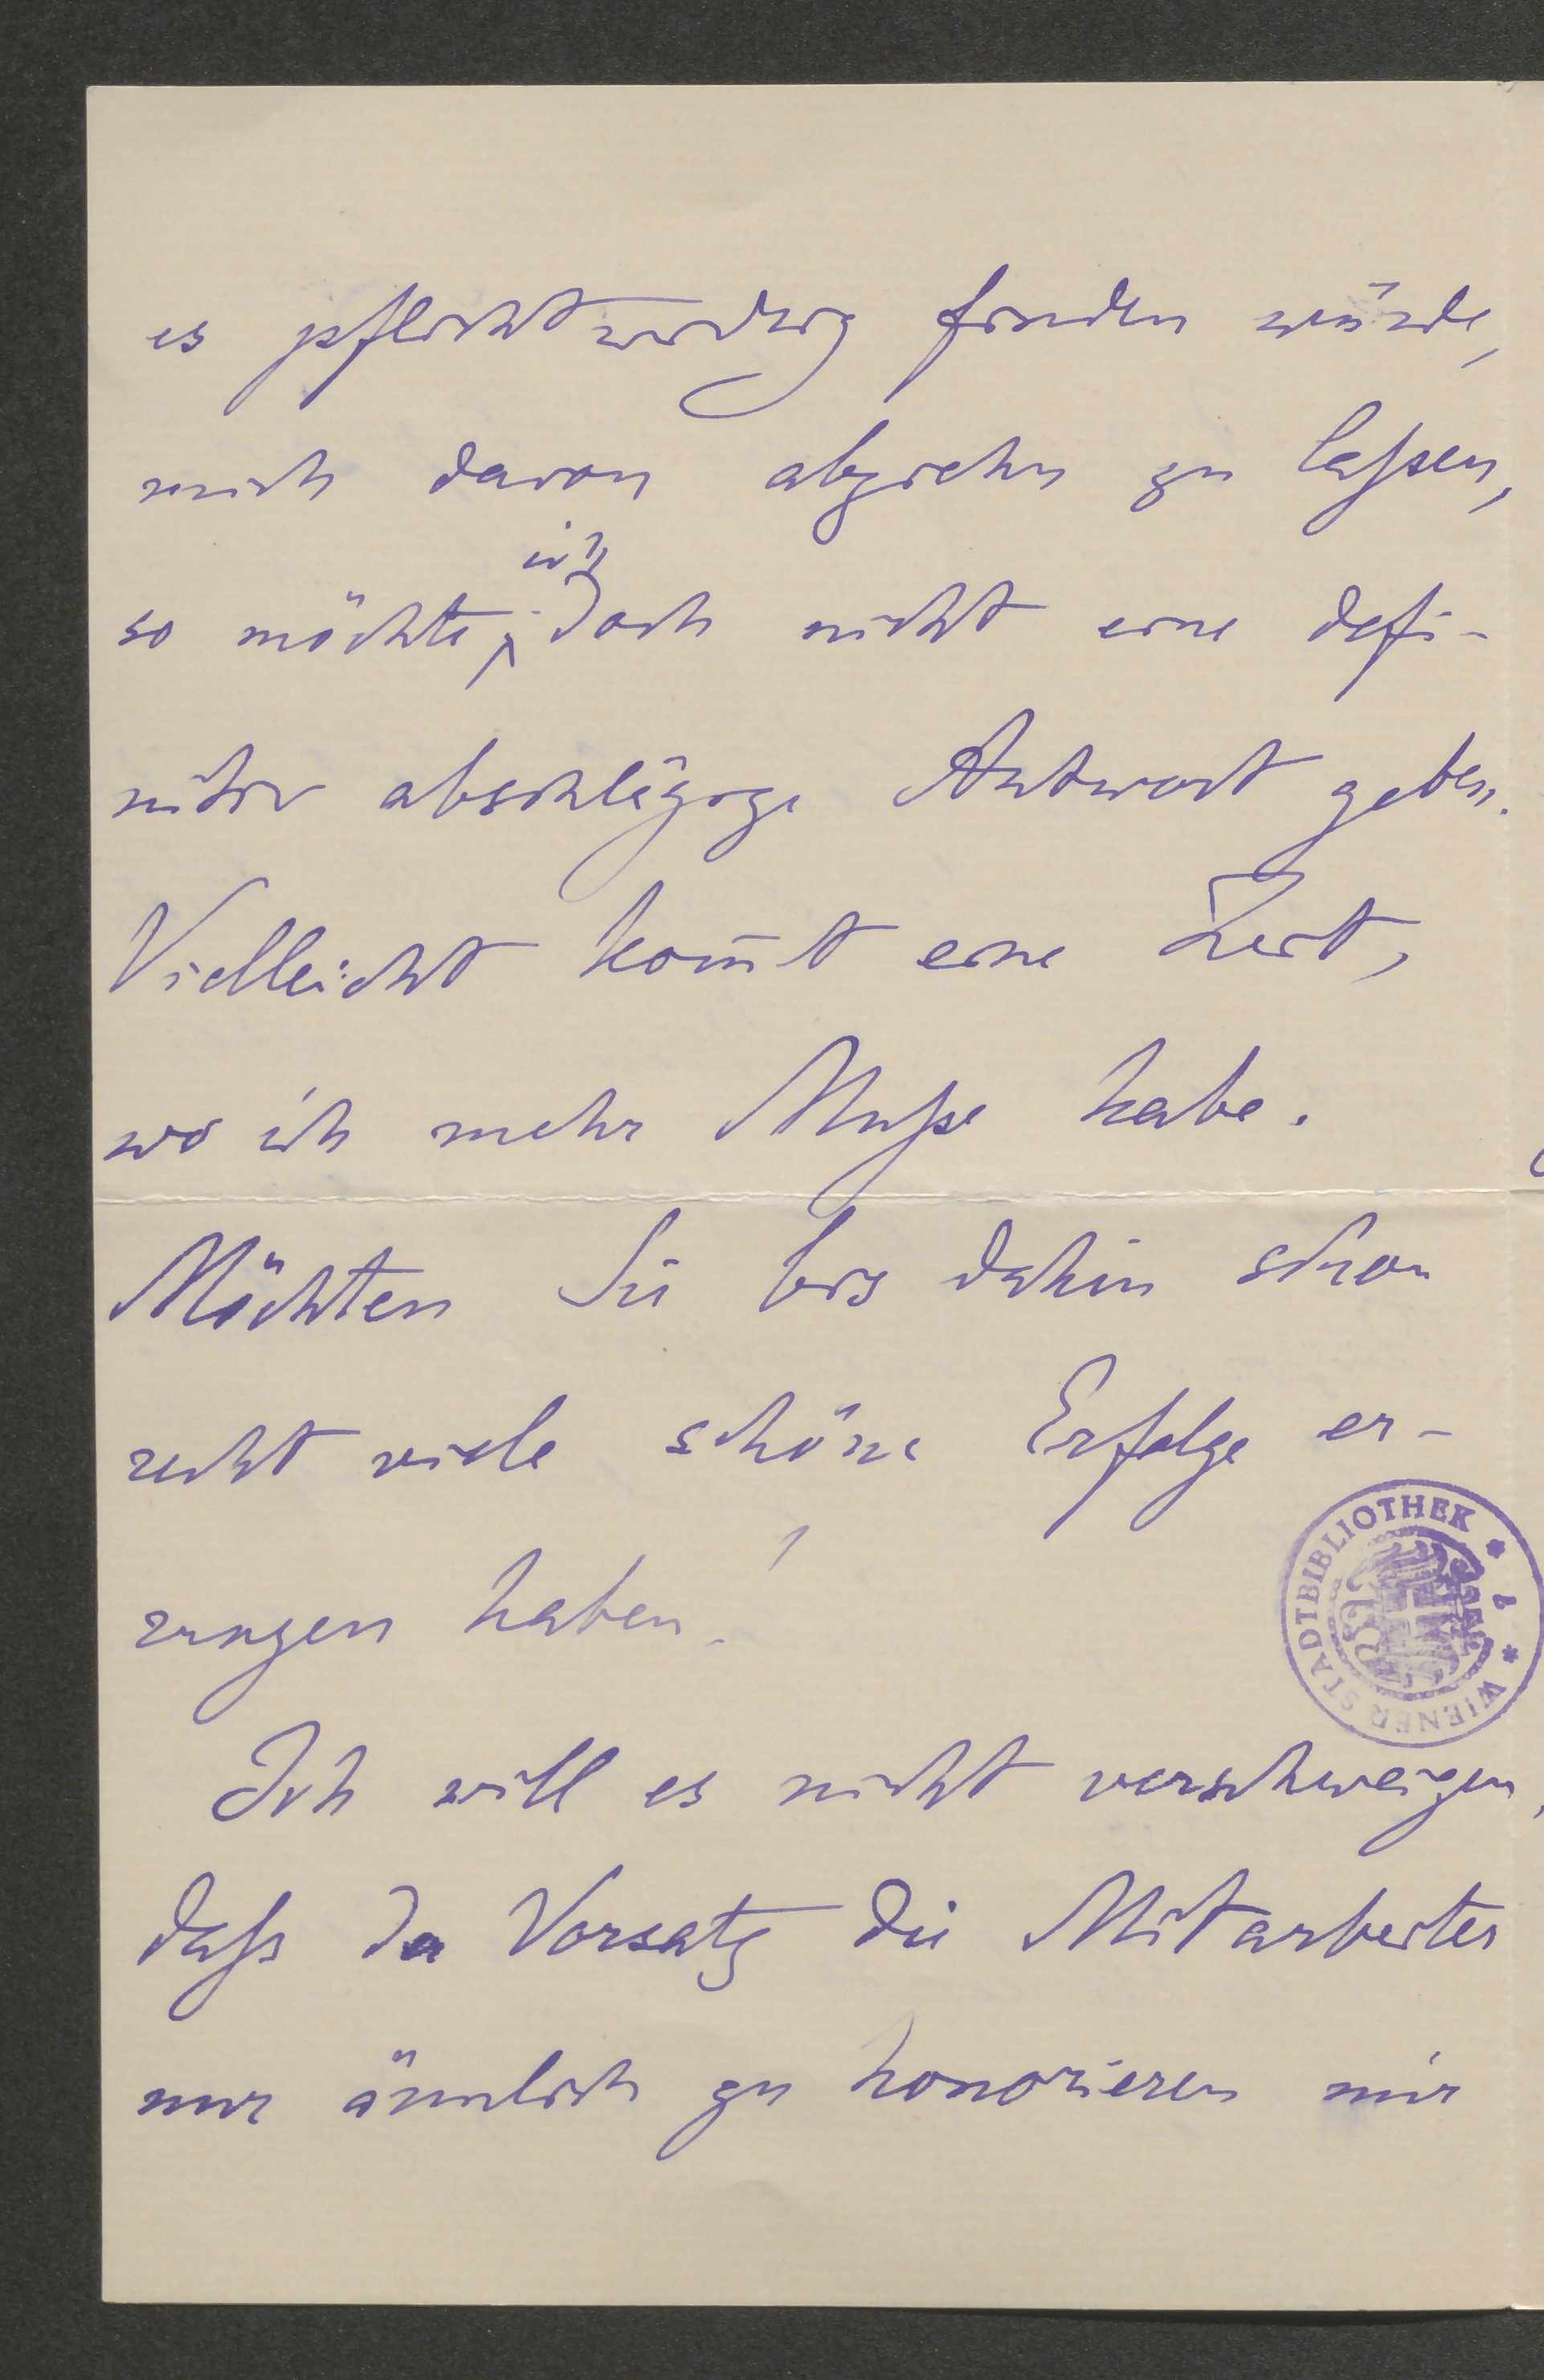 es pflichtwidrig finden würde,
mich davon abziehn zu laßen,
so möchte ich doch nicht eine defi-
nitiv abschlägige Antwort geben.
Vielleicht kom̄t eine Zeit,
wo ich mehr Muße habe.
Möchten Sie bis dahin schon
recht viele schöne Erfolge er-
rungen haben!
Ich will es nicht verschweigen,
daß der Vorsatz die Mitarbeiter
nur ärmlich zu honorieren mir
WIENER STADTBIBLIOTHEK * 1 *